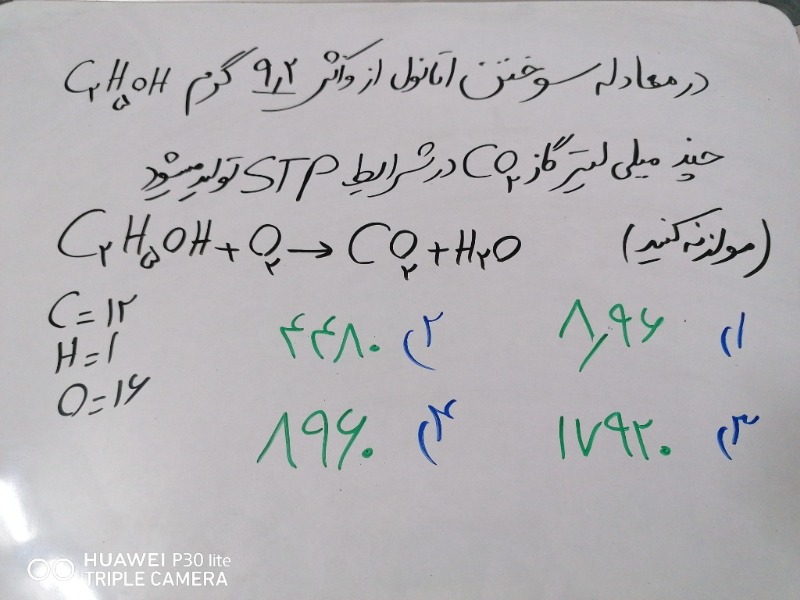 در معادله سوختن اتانول از واکنش ۹٫۲ گرم C₂H₅OH
چند میلی لیتر گاز CO₂ در شرایط STP تولید میشود
(موازنه کنید) C₂H₅OH + O₂ → CO₂ + H₂O
C = ۱۲
H = ۱
O = ۱۶
۱) ۸٫۹۶ ۲) ۴۴۸۰
۳) ۱۷۹۲۰ ۴) ۸۹۶۰
HUAWEI P30 lite
TRIPLE CAMERA